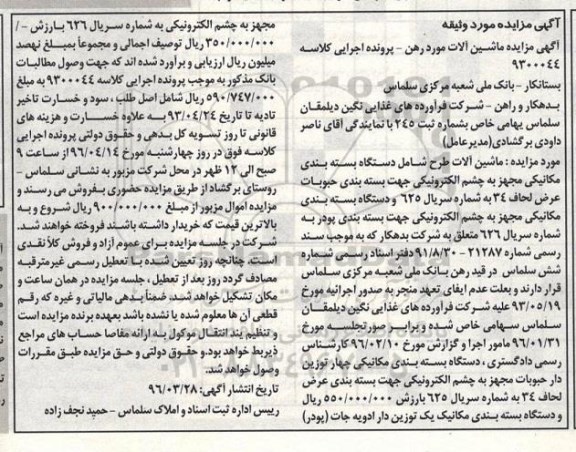 آگهی مزایده مورد وثیقه
آگهی مزایده ماشین آلات مورد رهن – پرونده اجرایی کلاسه
۹۳۰۰۰۴۴
بستانکار – بانک ملی شعبه مرکزی سلماس
بدهکار و راهن – شرکت فرآورده های غذایی نگین دیلمقان
سلماس سهامی خاص بشماره ثبت ۲۴۵ با نمایندگی آقای ناصر
داودی برگشادی(مدیر عامل)
مورد مزایده : ماشین آلات طرح شامل دستگاه بسته بندی
مکانیکی مجهز به چشم الکترونیکی جهت بسته بندی حبوبات
عرض لحاف ۳٤ به شماره سریال ٦۲٥ و دستگاه بسته بندی
مکانیکی مجهز به چشم الکترونیکی جهت بسته بندی پودر به
شماره سریال ٦۲٦ متعلق به شرکت بدهکار که به موجب سند
رسمی شماره ۲۱۲۸۷ – ۹۱/۸/۳۰ دفتر اسناد رسمی شماره
شش سلماس در قید رهن بانک ملی شعبه مرکزی سلماس
قرار دارند و بعلت عدم ایفای تعهد منجر به صدور اجرائیه مورخ
۹۳/۰۵/۱۹ علیه شرکت فرآورده های غذایی نگین دیلمقان
سلماس سهامی خاص شده و برابر صورتجلسه مورخ
۹۶/۰۱/۳۱ مامور اجرا و گزارش مورخ ۹۶/۰۲/۱۰ کارشناس
رسمی دادگستری ، دستگاه بسته بندی مکانیکی چهار توزین
دار حبوبات مجهز به چشم الکترونیکی جهت بسته بندی عرض
لحاف ۳٤ به شماره سریال ٦۲٥ بارزش ۵۵۰/۰۰۰/۰۰۰ ریال
و دستگاه بسته بندی مکانیک یک توزین دار ادویه جات (پودر)
مجهز به چشم الکترونیکی به شماره سریال ٦۲٦ بارزش – /
۳۵۰/۰۰۰/۰۰۰ ریال توصیف اجمالی و مجموعاً بمبلغ نهصد
میلیون ریال ارزیابی و برآورد شده اند که جهت وصول مطالبات
بانک مذکور به موجب پرونده اجرایی کلاسه ۹۳۰۰۰۴۴ به مبلغ
۵۹۰/۷۴۷/۰۰۰ ریال شامل اصل طلب ، سود و خسارت تاخیر
تادیه تا تاریخ ۹۳/۰۴/۲۴ به علاوه خسارت و هزینه های
قانونی تا روز تسویه کل بدهی و حقوق دولتی پرونده اجرایی
کلاسه فوق در روز چهارشنبه مورخ ۹۶/۰۴/۱۴ از ساعت ۹
صبح الی ۱۲ ظهر در محل شرکت مزبور به نشانی سلماس –
روستای برگشاد از طریق مزایده حضوری بفروش می رسند و
مزایده اموال مزبور از مبلغ ۹۰۰/۰۰۰/۰۰۰ ریال شروع و به
بالاترین قیمت که خریدار داشته باشند فروخته خواهند شد.
شرکت در جلسه مزایده برای عموم آزاد و فروش کلاً نقدی
است. چنانچه روز تعیین شده با تعطیل رسمی غیرمترقبه
مصادف گردد روز بعد از تعطیل ، جلسه مزایده در همان ساعت و
مکان تشکیل خواهد شد. ضمناً بدهی مالیاتی و غیره که رقم
قطعی آن ها معلوم شده یا نشده باشد بعهده برنده مزایده است
و تنظیم سند انتقال موکول به ارائه مفاصا حساب های مراجع
ذیربط خواهد بود. و حقوق دولتی و حق مزایده طبق مقررات
وصول خواهد شد.
تاریخ انتشار آگهی: ۹۶/۰۳/۲۸
رییس اداره ثبت اسناد و املاک سلماس – حمید نجف زاده